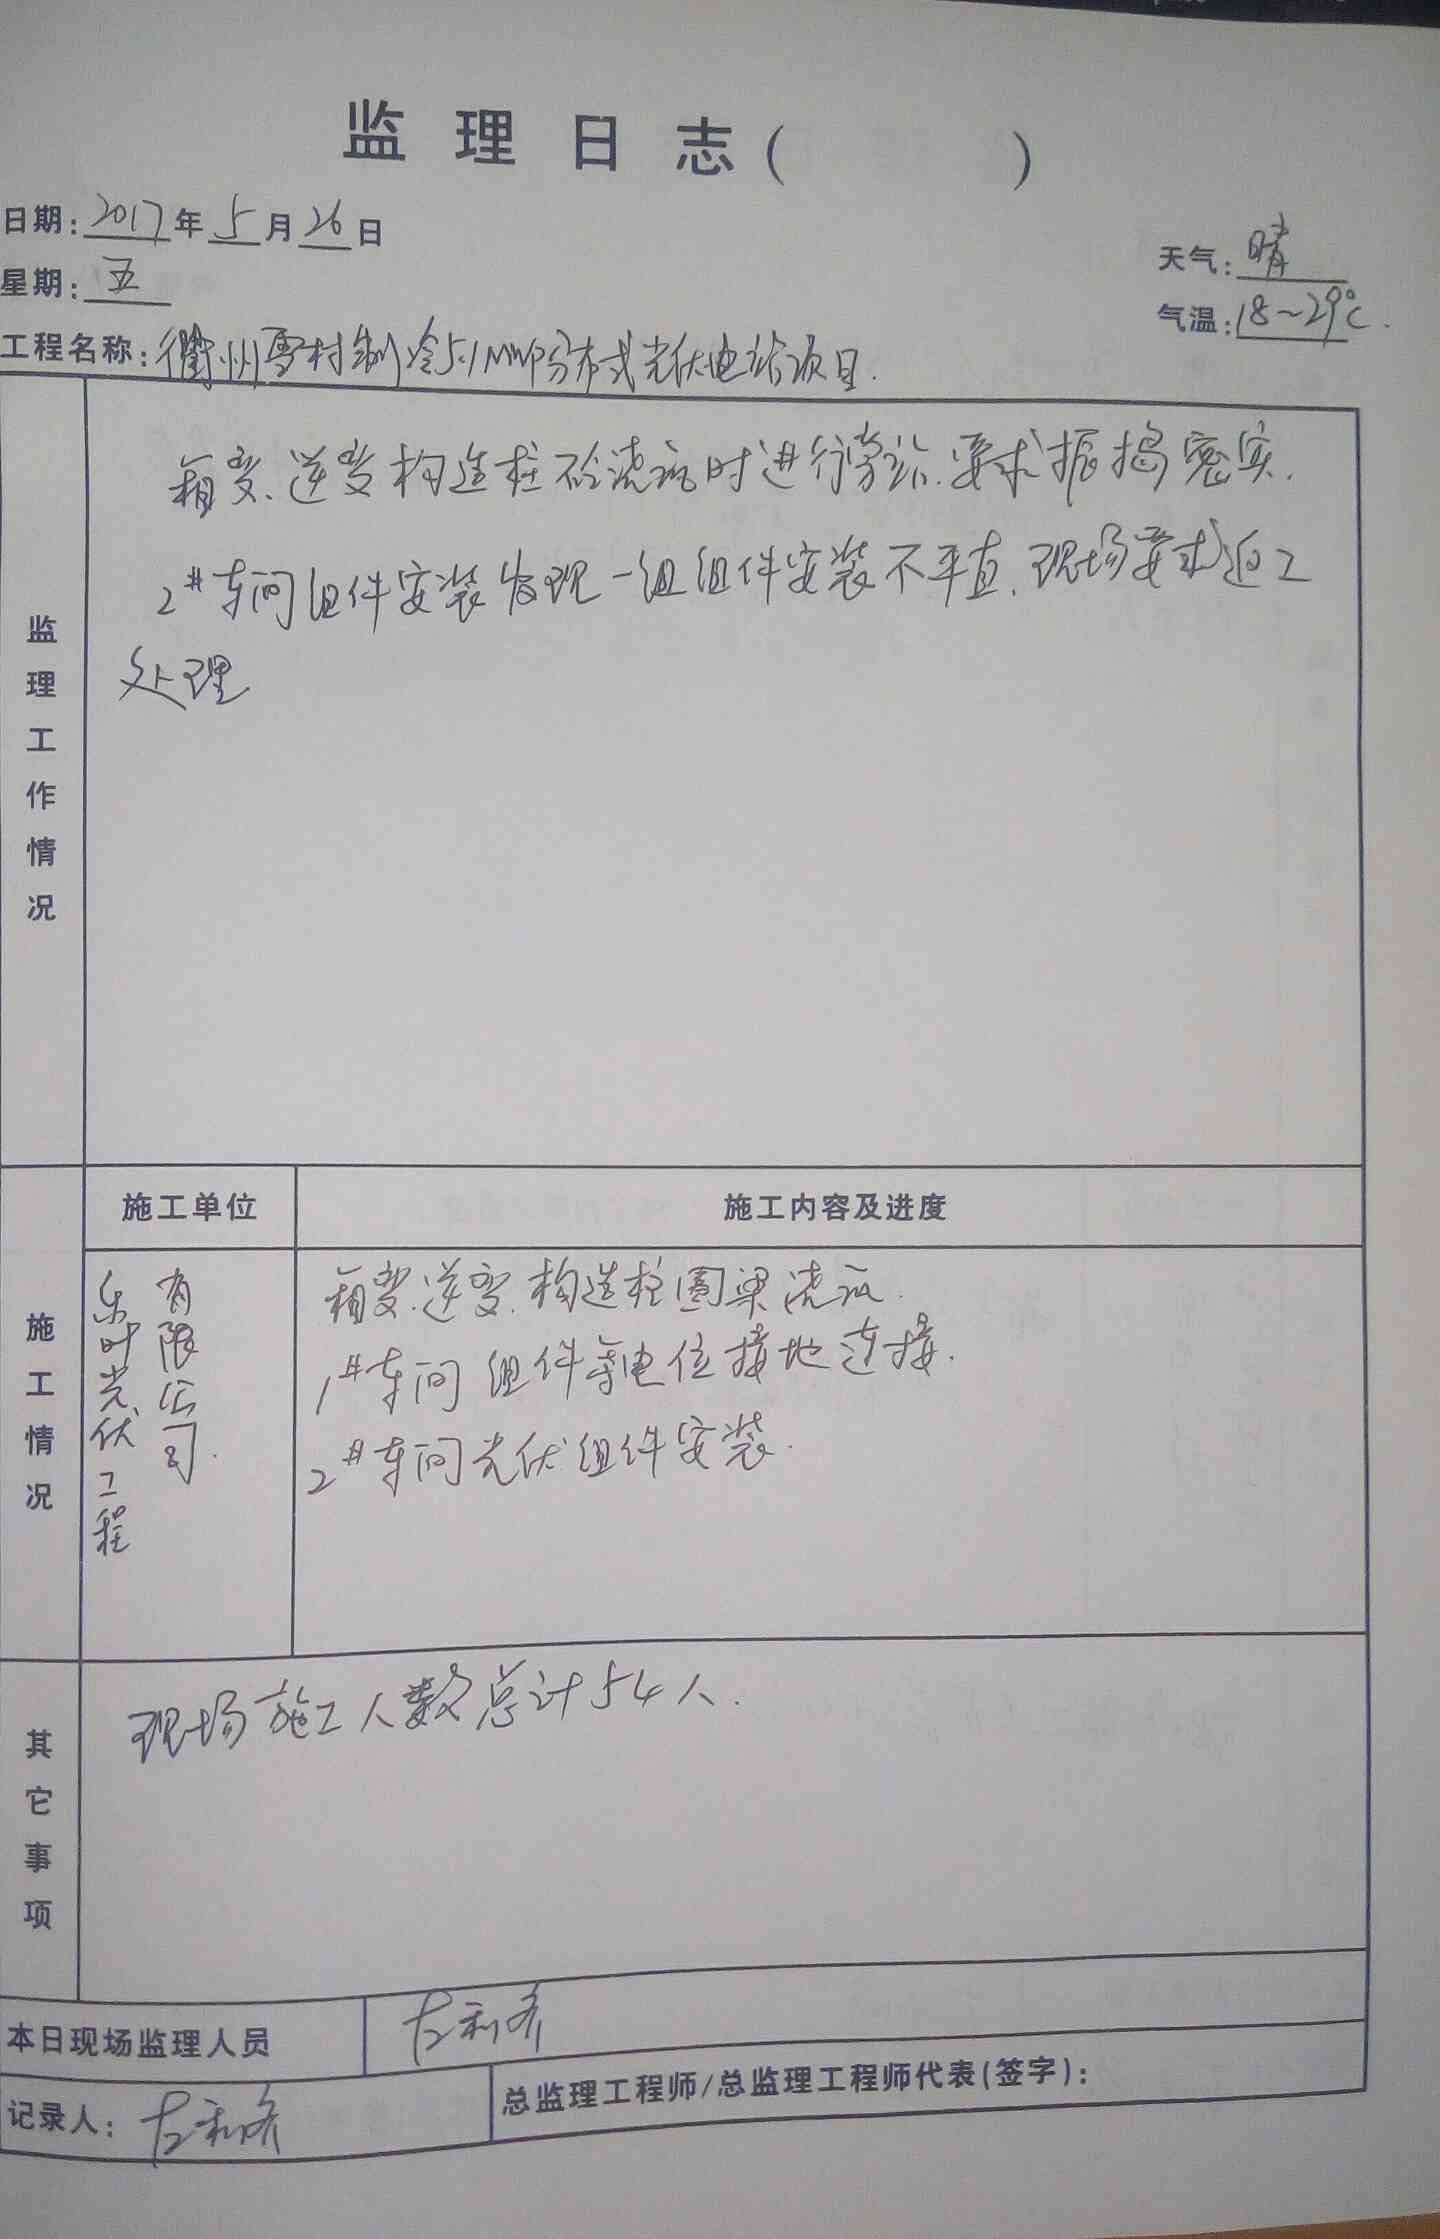 监理日志( )
日期:2017年5月26日
天气:晴
星期:五
气温:18~29℃.
工程名称:衢州雪村制冷5.1MWP分布式光伏电站项目.
监理工作情况
箱变、逆变构造柱砼浇筑时进行旁站.要求振捣密实.
2#车间组件安装发现一组组件安装不平直.现场要求返工
处理
施工单位
施工内容及进度
施工情况
乐叶光伏工程
有限公司.
箱变.逆变.构造柱圈梁浇筑.
1#车间组件等电位接地连接.
2#车间光伏组件安装.
其它事项
现场施工人数总计54人.
本日现场监理人员
记录人:
总监理工程师/总监理工程师代表(签字):